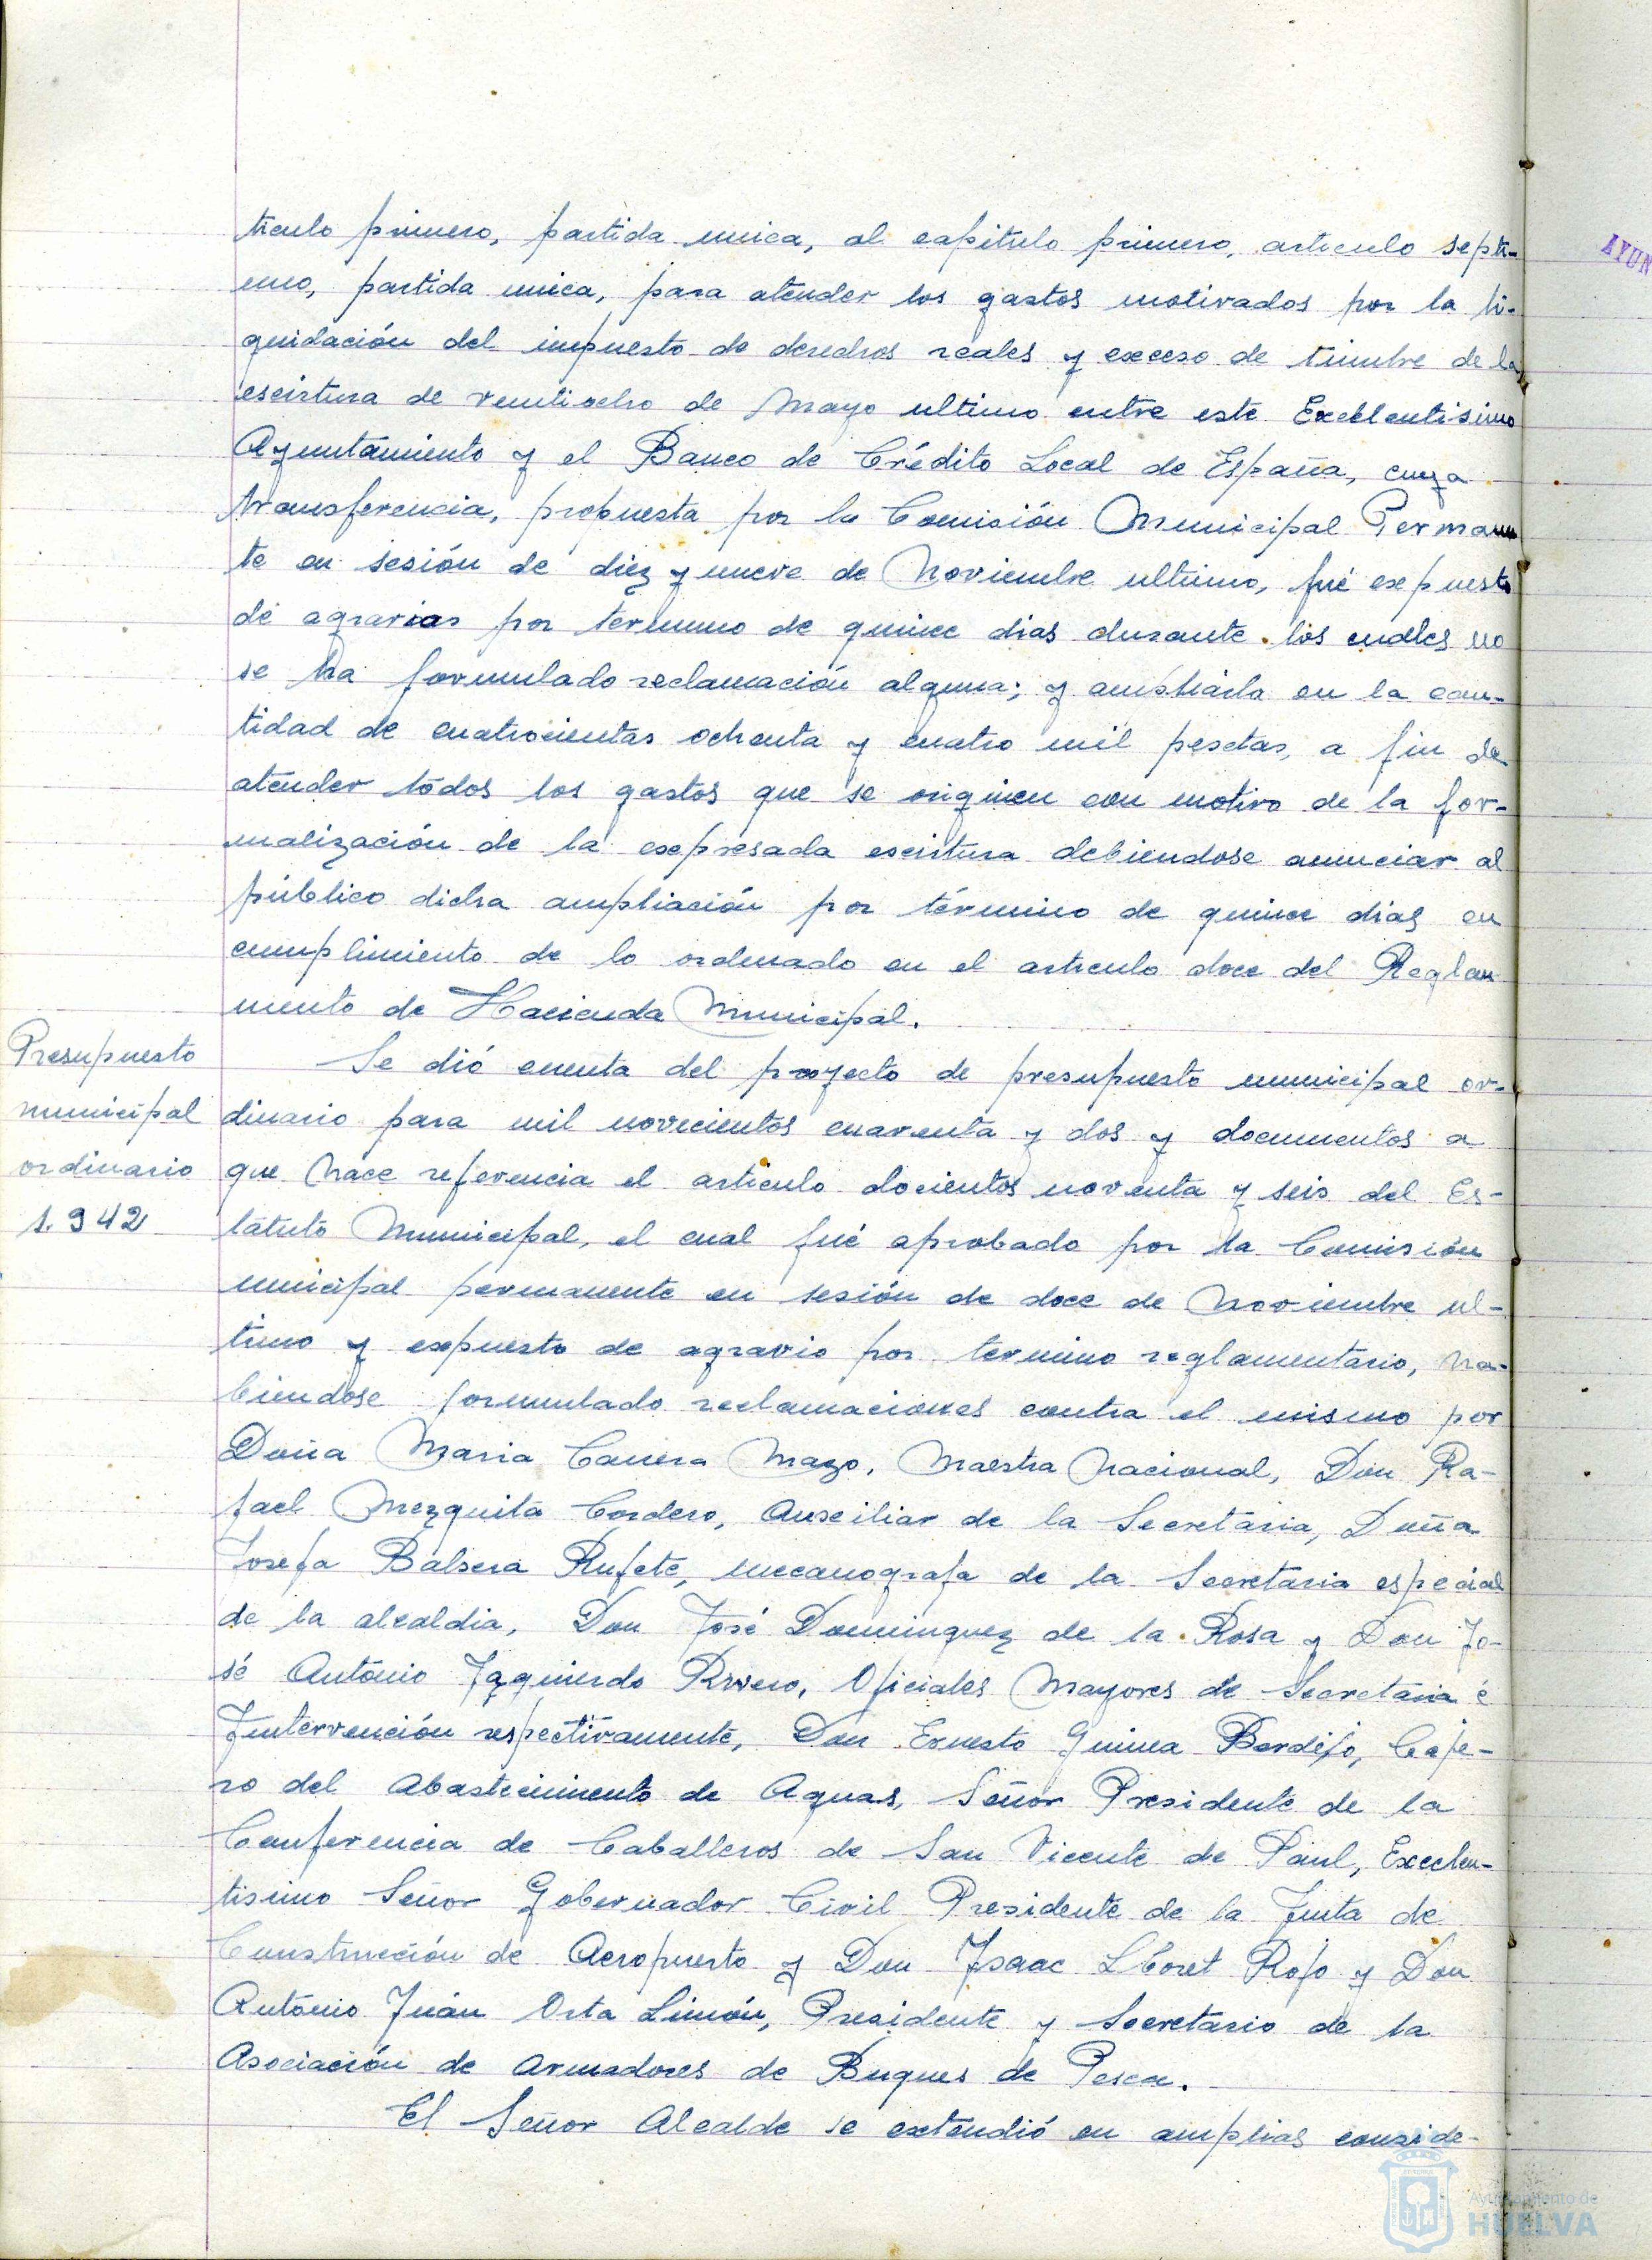 ticulo primero, partida unica, al capitulo primero, articulo septi-
mo, partida unica, para atender los gastos motivados por la li-
quidación del impuesto de derechos reales y exceso de timbre de la
escritura de veintiocho de Mayo ultimo entre este Excelentisimo
Ayuntamiento y el Banco de Crédito Local de España, cuya
transferencia, propuesta por la Comisión Municipal Permanen
te en sesión de diez y nueve de Noviembre ultimo, fué expuesta
de agravios por termino de quince dias durante los cuales no
se ha formulado reclamación alguna; y ampliarla en la can-
tidad de cuatrocientas ochenta y cuatro mil pesetas, a fin de
atender todos los gastos que se originen con motivo de la for-
malización de la expresada escritura debiendose anunciar al
público dicha ampliación por término de quince dias en
cumplimiento de lo ordenado en el articulo doce del Reglam
mento de Hacienda Municipal.
Presupuesto
municipal
ordinario
1.942
Se dió cuenta del proyecto de presupuesto municipal or-
dinario para mil novecientos cuarenta y dos y documentos a
que hace referencia el articulo docientos noventa y seis del Es-
tatuto Municipal, el cual fué aprobado por la Comisión
municipal permanente en sesión de doce de Noviembre ul-
timo y expuesto de agravio por termino reglamentario, ha-
biendose formulado reclamaciones contra el mismo por
Doña Maria Mazo, Maestra Nacional, Don Ra-
fael Mezquita Cordero, Auxiliar de la Secretaria, Doña
Josefa Balsera Rufete, mecanografa de la Secretaria especial
de la alcaldia, Don José Dominguez de la Rosa y Don Jo-
sé Antonio Izquierdo Rivero, Oficiales Mayores de Secretaria é
Intervención respectivamente, Don Ernesto Guinea Berdejo, Caje-
ro del Abastecimiento de Aguas, Señor Presidente de la
Conferencia de Caballeros de San Vicente de Paul, Excelen-
tisimo Señor Gobernador Civil Presidente de la Junta de
Construcción de Aeropuerto y Don Isaac Lloret Rojo y Don
Antonio Juán Orta Limón, Presidente y Secretario de la
Asociación de Armadores de Buques de Pesca.
El Señor Alcalde se extendió en amplias conside-
AYUN
Ayuntamiento de
HUELVA